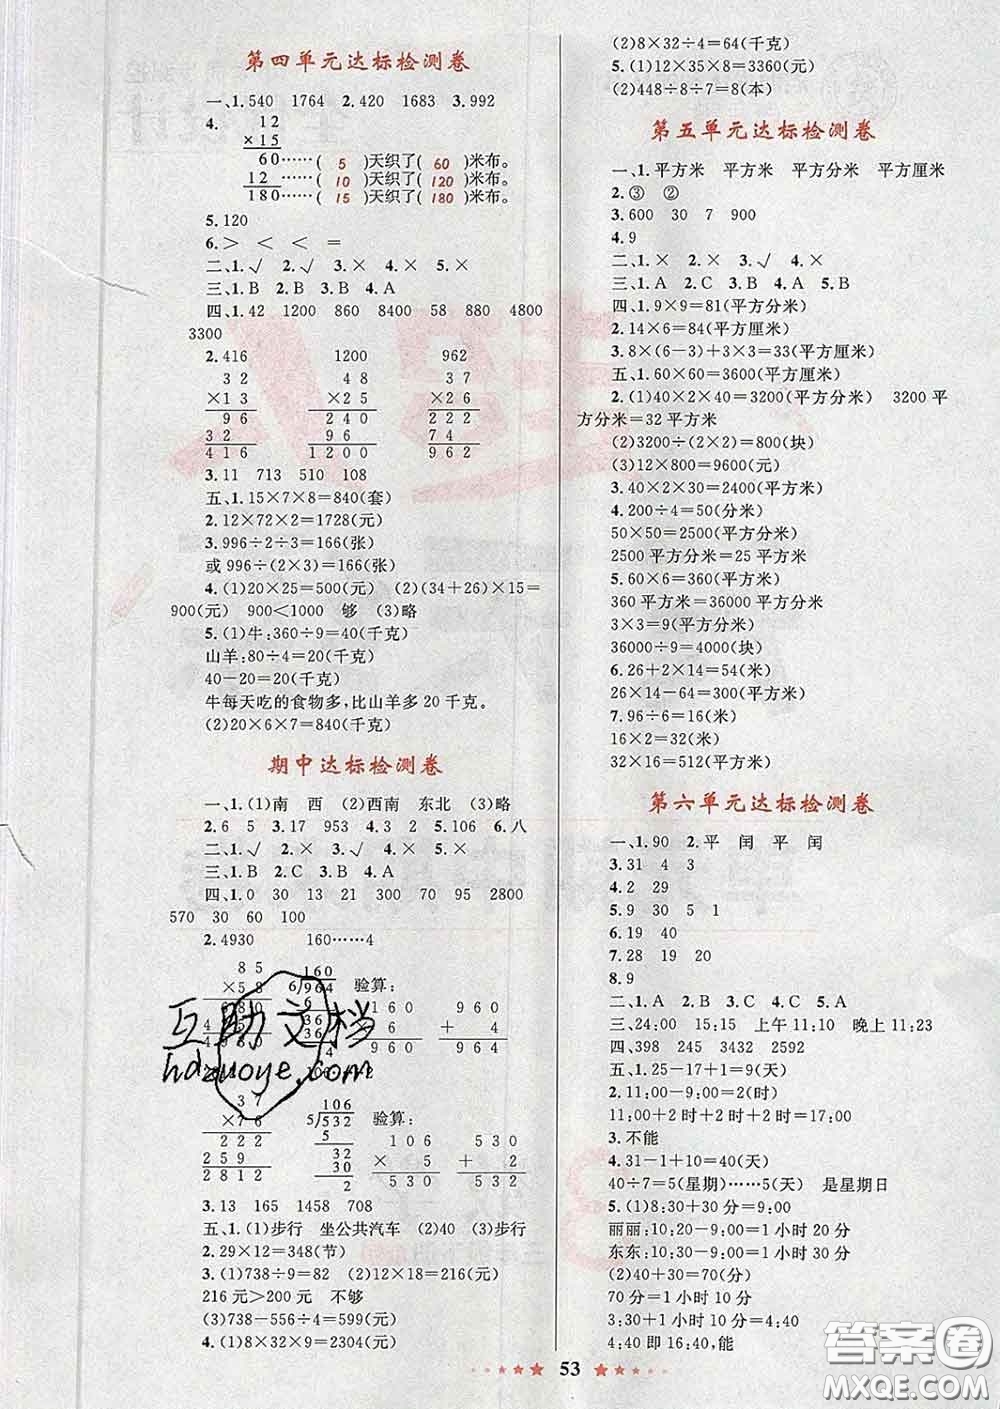 第四单元达标检测卷
一、1.540 1764 2.420 1683 3.992
4. 12
×15
60……( 5 )天织了( 60 )米布。
12 ……( 10 )天织了( 120 )米布。
180……( 15 )天织了( 180 )米布。
5.120
6.> < < =
二、1.√ 2.√ 3.× 4.× 5.×
三、1.B 2.B 3.B 4.A
四、1.42 1200 860 8400 58 880 4800
3300
2.416 1200 962
32 48 37
×13 ×25 ×26
96 240 222
32 96 74
416 1200 962
3.11 713 510 108
五、1.15×7×8=840(套)
2.12×72×2=1728(元)
3.996÷2÷3=166(张)
或996÷(2×3)=166(张)
4.(1)20×25=500(元) (2)(34+26)×15=
900(元) 900<1000 够 (3)略
5.(1)牛:360÷9=40(千克)
山羊:80÷4=20(千克)
40-20=20(千克)
牛每天吃的食物多,比山羊多20千克。
(2)20×6×7=840(千克)
期中达标检测卷
一、1.(1)南 西 (2)西南 东北 (3)略
2.6 5 3.17 953 4.3 2 5.106 6.八
二、1.√ 2.√ 3.× 4.× 5.×
三、1.B 2.C 3.B 4.A
四、1.0 30 13 21 300 70 95 2800
570 30 60 100
2.4930 160……4
85 160
×58 6/964 验算:
680 6 160 960
36 × 6 + 4
36 960 964
4
106……2
37 106
×76 5/532 验算:
222 5 106 530
259 32 × 5 + 2
2812 30 530 532
2
3.13 165 1458 708
五、1.(1)步行 坐公共汽车 (2)40 (3)步行
2.29×12=348(节)
3.(1)738÷9=82 (2)12×18=216(元)
216元>200元 不够
(3)738-556÷4=599(元)
4.(1)8×32×9=2304(元)
(2)8×32÷4=64(千克)
5.(1)12×35×8=3360(元)
(2)448÷8÷7=8(本)
第五单元达标检测卷
一、1.平方米 平方米 平方分米 平方厘米
2.③ ②
3.600 30 7 900
4.9
二、1.× 2.× 3.√ 4.×
三、1.A 2.C 3.B 4.A 5.B
四、1.9×9=81(平方分米)
2.14×6=84(平方厘米)
3.8×(6-3)+3×3=33(平方厘米)
五、1.60×60=3600(平方厘米)
2.(1)40×2×40=3200(平方分米) 3200平
方分米=32平方米
(2)3200÷(2×2)=800(块)
(3)12×800=9600(元)
3.40×2×30=2400(平方米)
4.200÷4=50(分米)
50×50=2500(平方分米)
2500平方分米=25平方米
5.60×6=360(平方米)
360平方米=36000平方分米
3×3=9(平方分米)
36000÷9=4000(块)
6.26+2×14=54(米)
26×14-64=300(平方米)
7.96÷6=16(米)
16×2=32(米)
32×16=512(平方米)
第六单元达标检测卷
一、1.90 2.平 闰 平 闰
3.31 4 3
4.2 29
5.9 30 5 1
6.19 40
7.28 19 20
8.9
二、1.A 2.B 3.C 4.C 5.A
三、24:00 15:15 上午11:10 晚上11:23
四、398 245 3432 2592
五、1.25-17+1=9(天)
2.11:00-9:00=2(时)
11:00+2时+2时+2时=17:00
3.不能
4.31-1+10=40(天)
40÷7=5(星期)……5(天) 是星期日
5.(1)8:30+30分=9:00
丽丽:10:20-9:00=1小时20分
东东:10:30-9:00=1小时30分
(2)40+30=70(分)
70分=1小时10分
3:30+1小时10分=4:40
4:40即16:40,能
53
互助文档
hdzuoye.com
答案圈
MXQE.COM